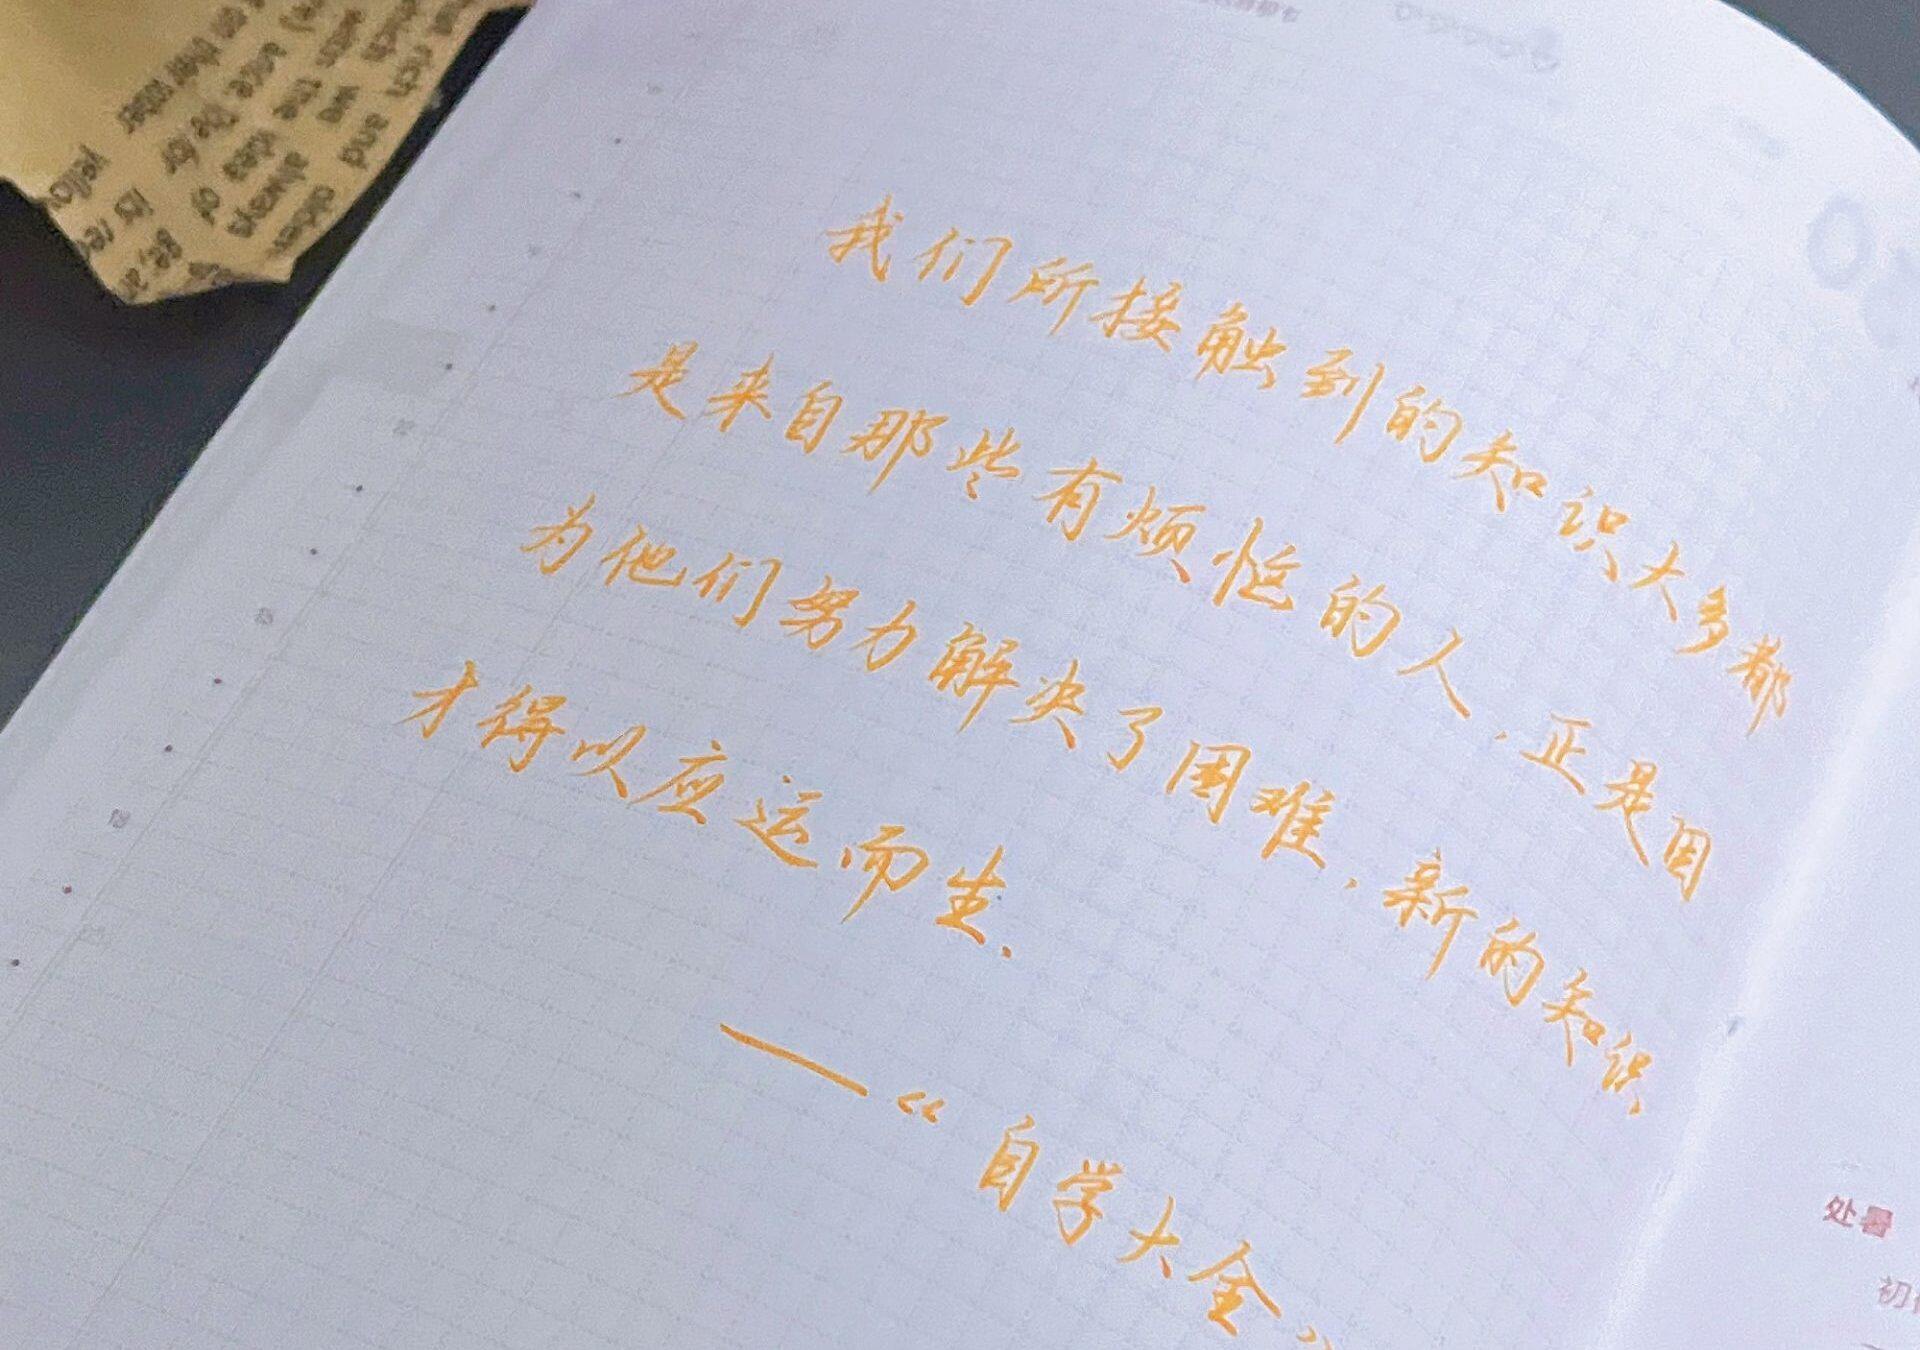 我们所接触到的知识大多都
是来自那些有烦恼的人，正是因
为他们努力解决了困难，新的知识
才得以应运而生.
—“自学大全”
处暑